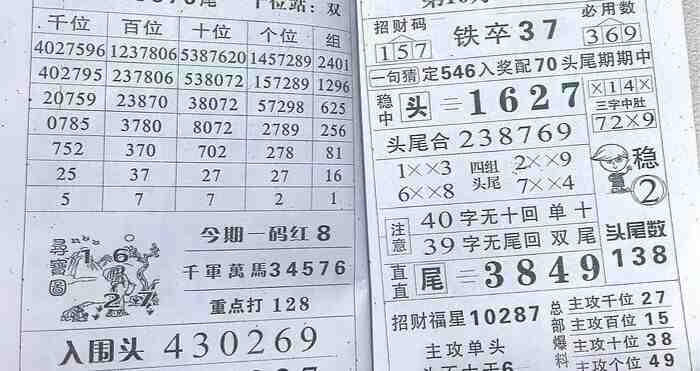 十位站：双
千位 百位 十位 个位 组
4027596 1237806 5387620 1457289 2401
402795 237806 538072 157289 1296
20759 23870 38072 57298 625
0785 3780 8072 2789 256
752 370 702 278 81
25 37 27 27 16
5 7 7 2 1
尋寶圖
1 6
2 7
今期一码红8
千軍萬馬34576
重点打 128
入围头 430269
招财码
157
铁卒37
必用数
369
一句猜 定546入奖配70头尾期期中
稳中 头 =1627
×14×
三字中肚
72×9
头尾合 238769
1××3 四组 2××9
6××8 头尾 7××4
稳
2
注意
40字无十回 单十
39字无尾回 双尾
头尾数
138
直直 尾 =3849
招财福星10287
主攻单头
总部爆料
主攻千位 27
主攻百位 15
主攻十位 38
主攻个位 49